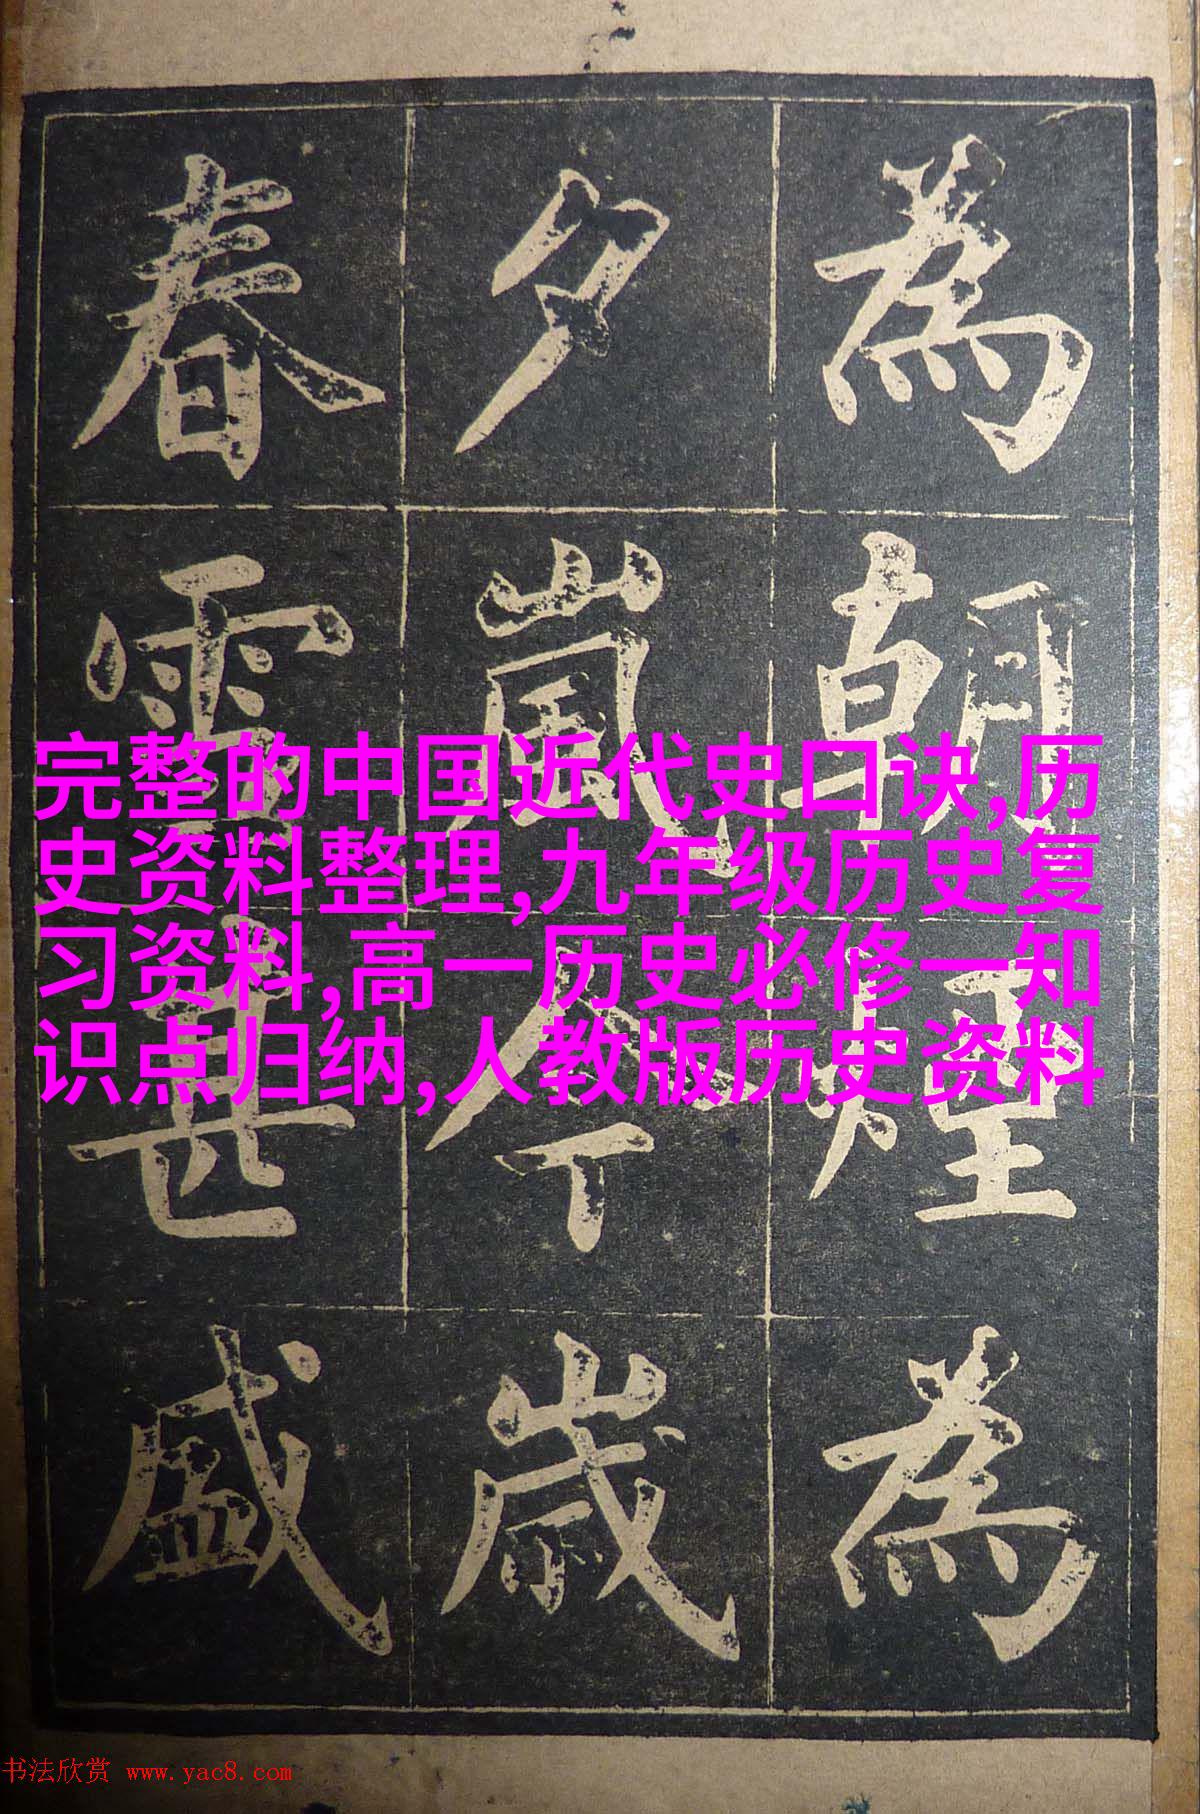 為朝煙為
夕嵐今歲
春雪甚盛
完整的中国近代史口诀,历
史资料整理,九年级历史复
习资料,高一历史必修一知
识点归纳,人教版历史资料
书法欣赏 www.yac8.com